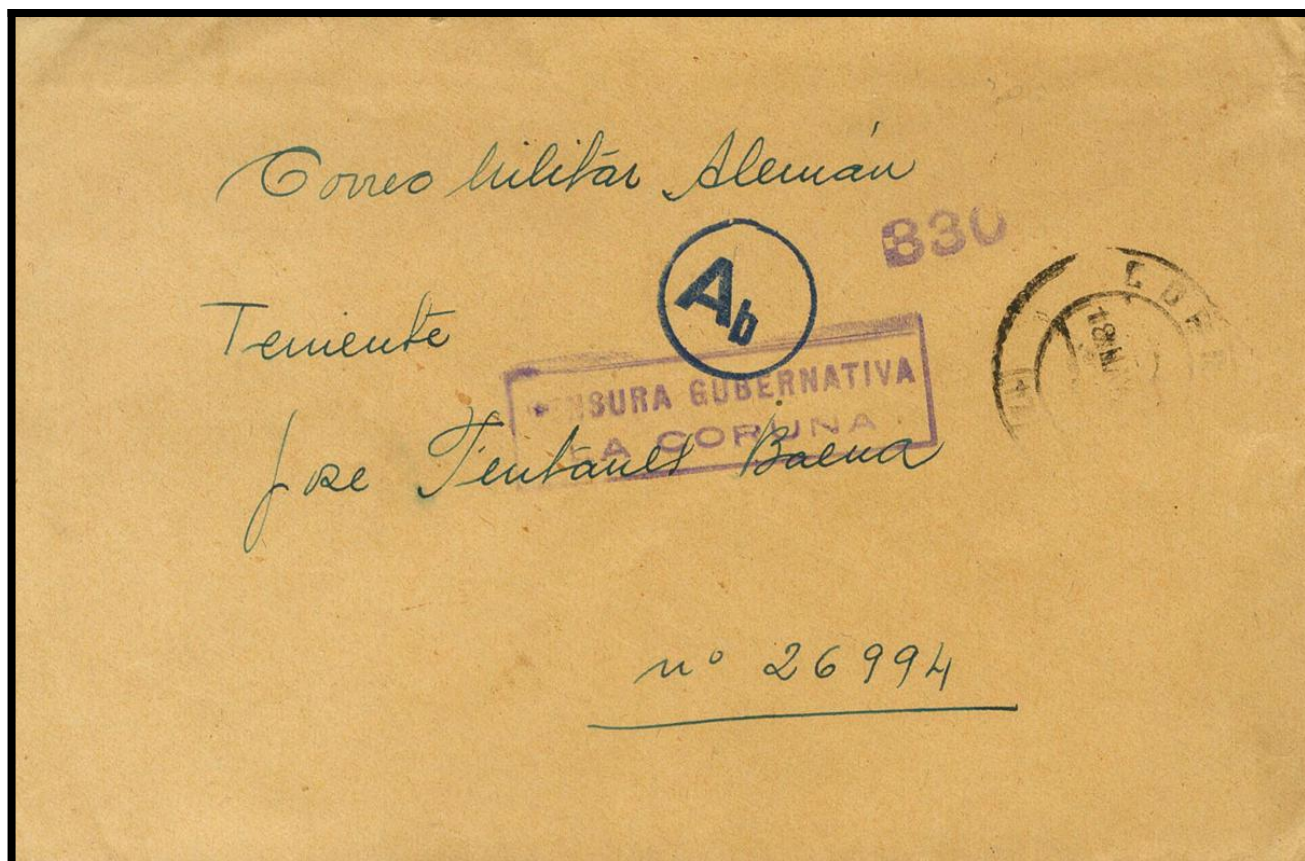 Correo Militar Alemán
830
Ab
Teniente
CENSURA GUBERNATIVA
LA CORUNA
Jose Baena
18
nº 26994